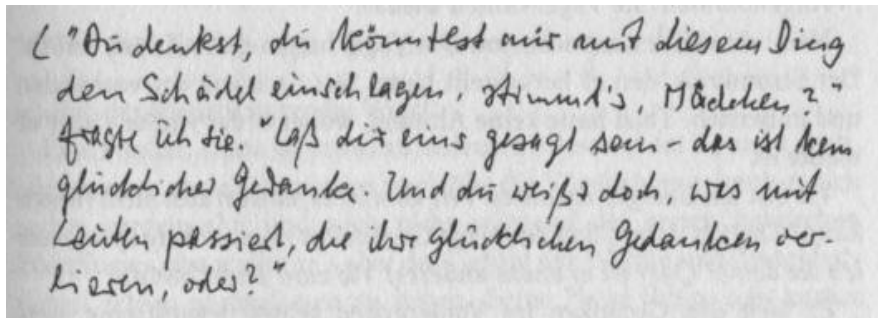 ("Du denkst, du könntest mir mit diesem Ding
den Schädel einschlagen, stimmt's, Mädchen?"
fragte ich sie. "Laß dir eins gesagt sein - das ist kein
glücklicher Gedanke. Und du weißt doch, was mit
Leuten passiert, die ihre glücklichen Gedanken ver-
lieren, oder?"